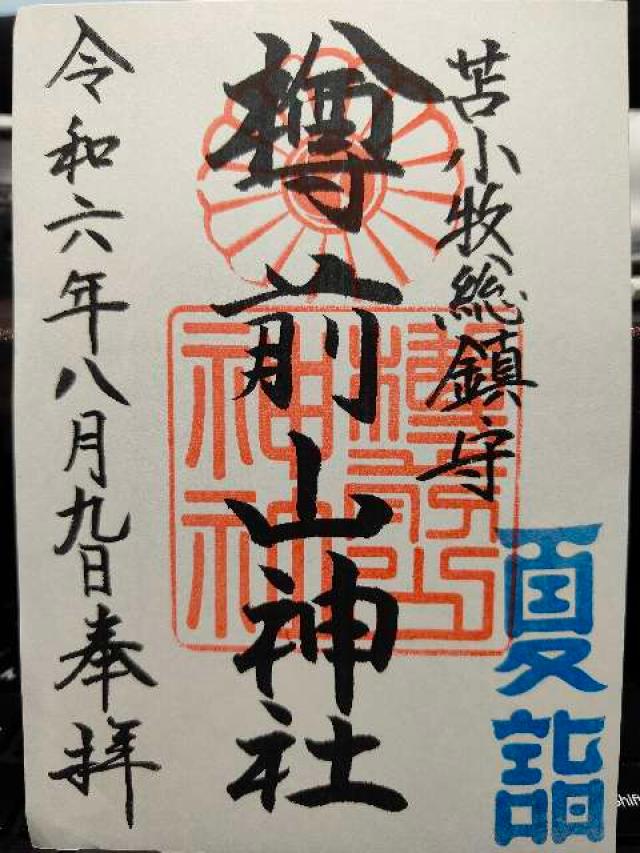 苫小牧総鎮守
樽前山神社
令和六年八月九日奉拝
夏詣
樽前山
神社
Shift